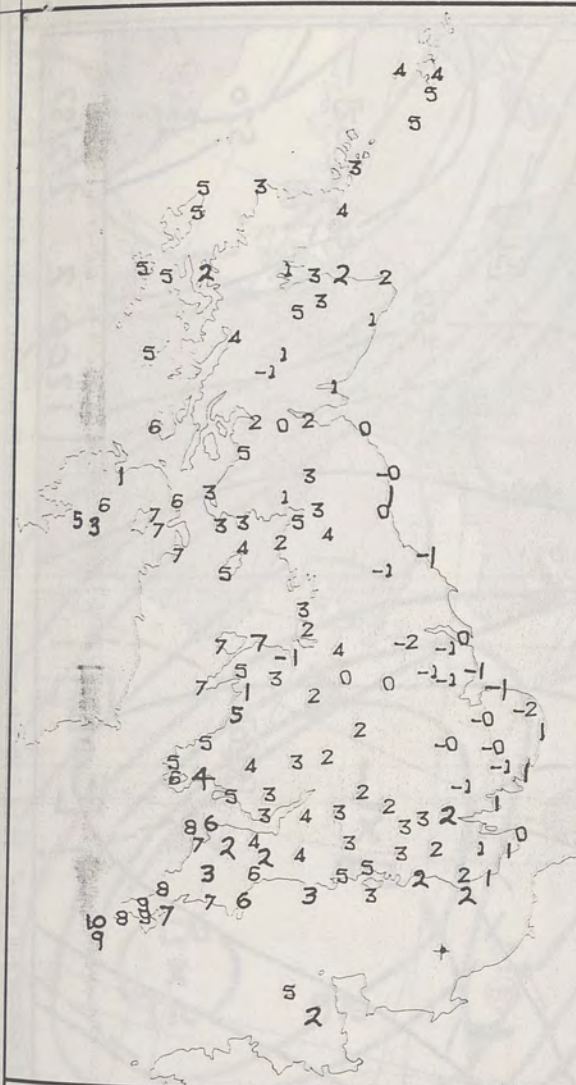 4 4
5
5
3
5 3
5 4
5 5 2 1 3 2 2
5 3
1
4
5 1
-1
1
6 2 0 2 0
5
1 3 -0
6 6 3 1 1
5 3 7 3 3 5 3 0
7 4
7 4 2
5 -1 -1
3
2 0
7 7 -1 4 -2 -1
5 3 0 0 -1 -1 -1
7 1 2 -1
5 -0 -2
5 2 -0 -0 1
5 4 3 2 -1 1
6 4
5 3 2 -1 1
3 4 3 2 3 2
8 6 3 0
7 2 4 2 4 3 3 2 1 1
3 6 5 5 2 2 1
8 7 6 3 3 2
10 8 9 9 7
9
5
2